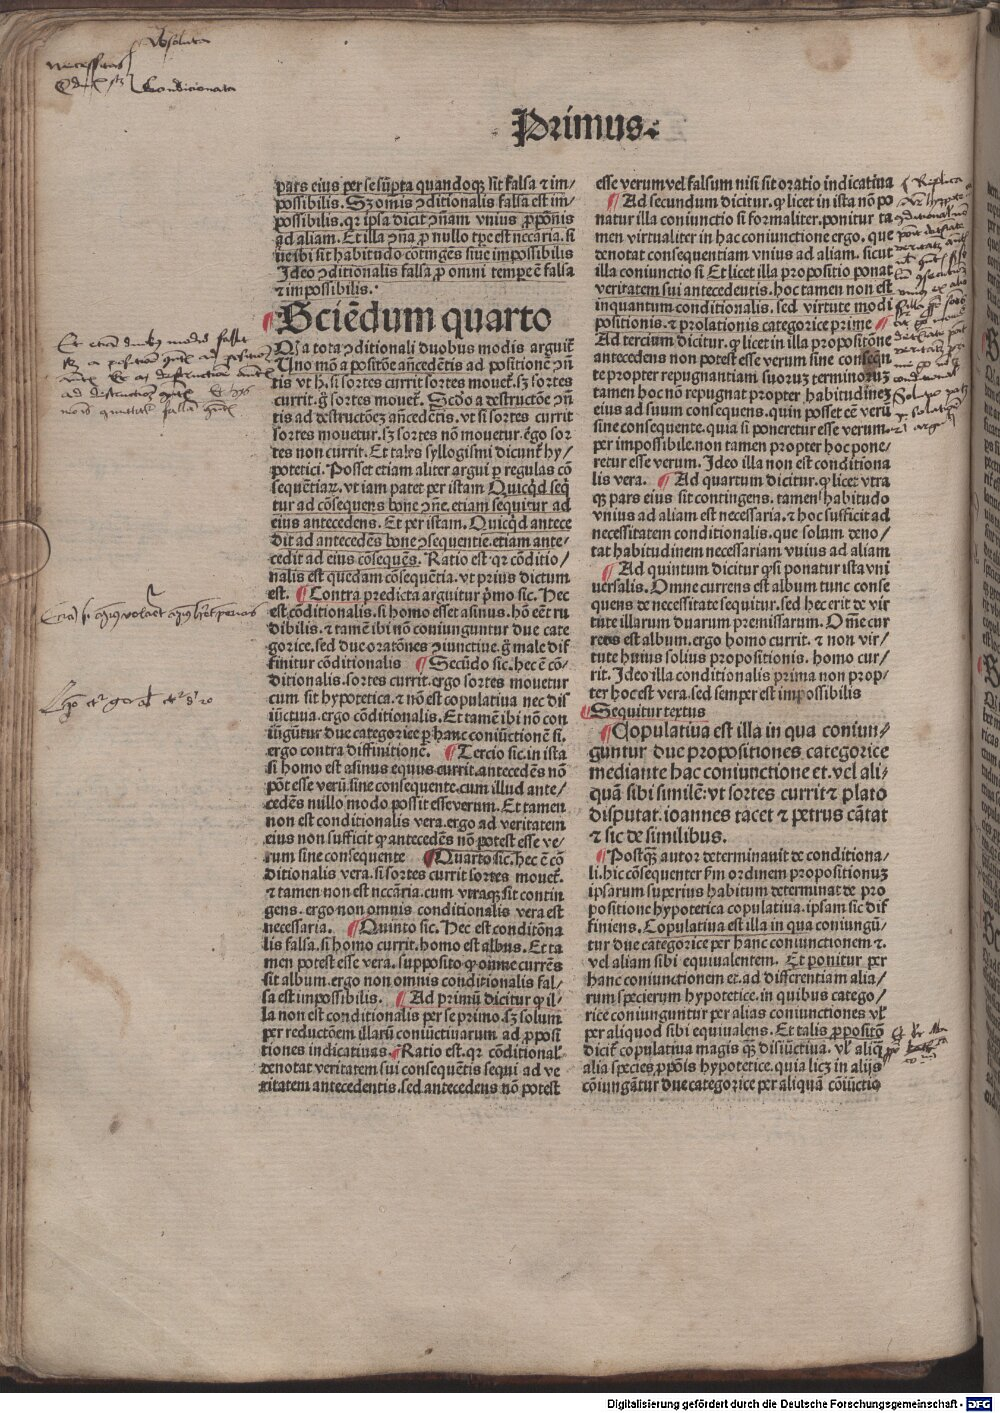 Absoluta
necessitas
Condicionata
Primus.
pars eius per se sūpta quandoqꝫ sit falsa ⁊ im/
possibilis. Sꝫ omīs ꝯditionalis falsa est im/
possibilis. qꝛ ipsa dicit ꝯñam vnius ꝓpōnis
ad aliam. Et illa ꝯña ꝓ nullo tpe est nccāria. si
ue ibi sit habitudo cōtingēs siue impossibilis
Ideo ꝯditionalis falsa ꝓ omni tempe ē falsa
⁊ impossibilis.
Sciēdum quarto
Uno mō a positōe añcedētis ad positionē ꝯñ
tis vt hꝫ. si sortes currit sortes mouet. sꝫ sortes
currit. g̈ sortes mouet. Scdo a destructōe ꝯñ
tis ad destructōeꝫ añcedētis. vt si sortes currit
sortes mouetur. sꝫ sortes nō mouetur. ergo sor
tes non currit. Et tales syllogismi dicunt hy/
potetici. Posset etiam aliter argui ꝑ regulas cō
sequētiaꝝ. vt iam patet per istam Quicqd seqͭ
tur ad cōsequens bone ꝯñe. etiam sequitur ad
eius antecedens. Et per istam. Quicqd antece
dit ad antecedēs bone ꝯsequentie. etiam ante/
cedit ad eius cōsequēs. Ratio est. qꝛ cōditio/
nalis est quedam cōsequētia. vt prius dictum
est. Contra predicta arguitur pͥmo sic. Hec
est cōditionalis. si homo esset asinus. hō eēt ru
dibilis. ⁊ tamē ibi nō coniunguntur due cate
gorice. sed due oratōnes ꝯiunctiue. g̈ male dif
finitur cōditionalis Secūdo sic. hec ē cō/
ditionalis. sortes currit. ergo sortes mouetur
cum sit hypotetica. ⁊ nō est copulatiua nec dis
iūctiua. ergo cōditionalis. Et tamē ibi nō con
iūgūtur due categorice ꝑ hanc coniūctionē si.
ergo contra diffinitionē. Tercio sic. in ista
si homo est asinus equus currit. antecedēs nō
pōt esse verū sine consequente. cum illud ante/
cedēs nullo modo possit esse verum. Et tamen
non est conditionalis vera. ergo ad veritatem
eius non sufficit ꝙ antecedēs nō potest esse ve/
rum sine consequente Quarto sic. hec ē cō
ditionalis vera. si sortes currit sortes mouet.
⁊ tamen non est nccāria. cum vtraqꝫ sit contin
gens. ergo non omnis conditionalis vera est
necessaria. Quinto sic. Hec est conditōna
lis falsa. si homo currit. homo est albus. Et ta
men potest esse vera. supposito ꝙ omne currēs
sit album. ergo non omnis conditionalis fal/
sa est impossibilis. Ad primū dicitur ꝙ il/
la non est conditionalis per se primo. sꝫ solum
per reductōem illarū coniūctiuarum ad ꝓposi
tiones indicatiuas. Ratio est. qꝛ cōditional
denotat veritatem sui consequētis sequi ad ve
ritatem antecedentis. sed antecedens nō potest
esse verum vel falsum nisi sit oratio indicatiua
Ad secundum dicitur. ꝙ licet in ista nō po
natur illa coniunctio si formaliter. ponitur ta
men virtualiter in hac coniunctione ergo. que
denotat consequentiam vnius ad aliam. sicut
illa coniunctio si Et licet illa propositio ponat
veritatem sui antecedentis. hoc tamen non est
inquantum conditionalis. sed virtute modi
positionis. ⁊ prolationis categorice prime
Ad tercium dicitur. ꝙ licet in illa propositione
antecedens non potest esse verum sine conseqn
te propter repugnantiam suorum terminoruꝫ
tamen hoc non repugnat propter habitudineꝫ
eius ad suum consequens. quin posset eē verū
sine consequente. quia si poneretur esse verum.
per impossibile. non tamen propter hoc pone/
retur esse verum. Ideo illa non est conditiona
lis vera. Ad quartum dicitur. ꝙ licet vtra
qꝫ pars eius sit contingens. tamen habitudo
vnius ad aliam est necessaria. ⁊ hoc sufficit ad
necessitatem conditionalis. que solum deno/
tat habitudinem necessariam vnius ad aliam
Ad quintum dicitur ꝙ si ponatur ista vni
uersalis. Omne currens est album tunc conse
quens de necessitate sequitur. sed hec erit de vir
tute illarum duarum premissarum. Omē cur
rens est album. ergo homo currit. ⁊ non vir/
tute huius solius propositionis. homo cur/
rit. Ideo illa conditionalis prima non prop/
ter hoc est vera. sed semper est impossibilis
Sequitur textus
Copulatiua est illa in qua coniun/
guntur due propositiones categorice
mediante hac coniunctione et. vel ali/
quā sibi similē: vt sortes currit ⁊ plato
disputat. ioannes tacet ⁊ petrus cātat
⁊ sic de similibus.
Postqꝫ autor determinauit de conditiona/
li. hic cōsequenter ẜm ordinem propositionuꝫ
ipsarum superius habitum determinat de pro
positione hypotetica copulatiua. ipsam sic dif
finiens. Copulatiua est illa in qua coniungū/
tur due categorice per hanc coniunctionem ⁊.
vel aliam sibi equiualentem. Et ponitur per
hanc coniunctionem et. ad differentiam alia/
rum specierum hypotetice. in quibus catego/
rice coniunguntur per alias coniunctiones vl
per aliquod sibi equiualens. Et talis ꝓpositō
dicit copulatiua magis qꝫ disiūctiua. vl aliq̄
alia species ꝓpōnis hypotetice. quia licꝫ in alijs
cōiungātur due categorice per aliquā cōiūctio
Digitalisierung gefördert durch die Deutsche Forschungsgemeinschaft - DFG